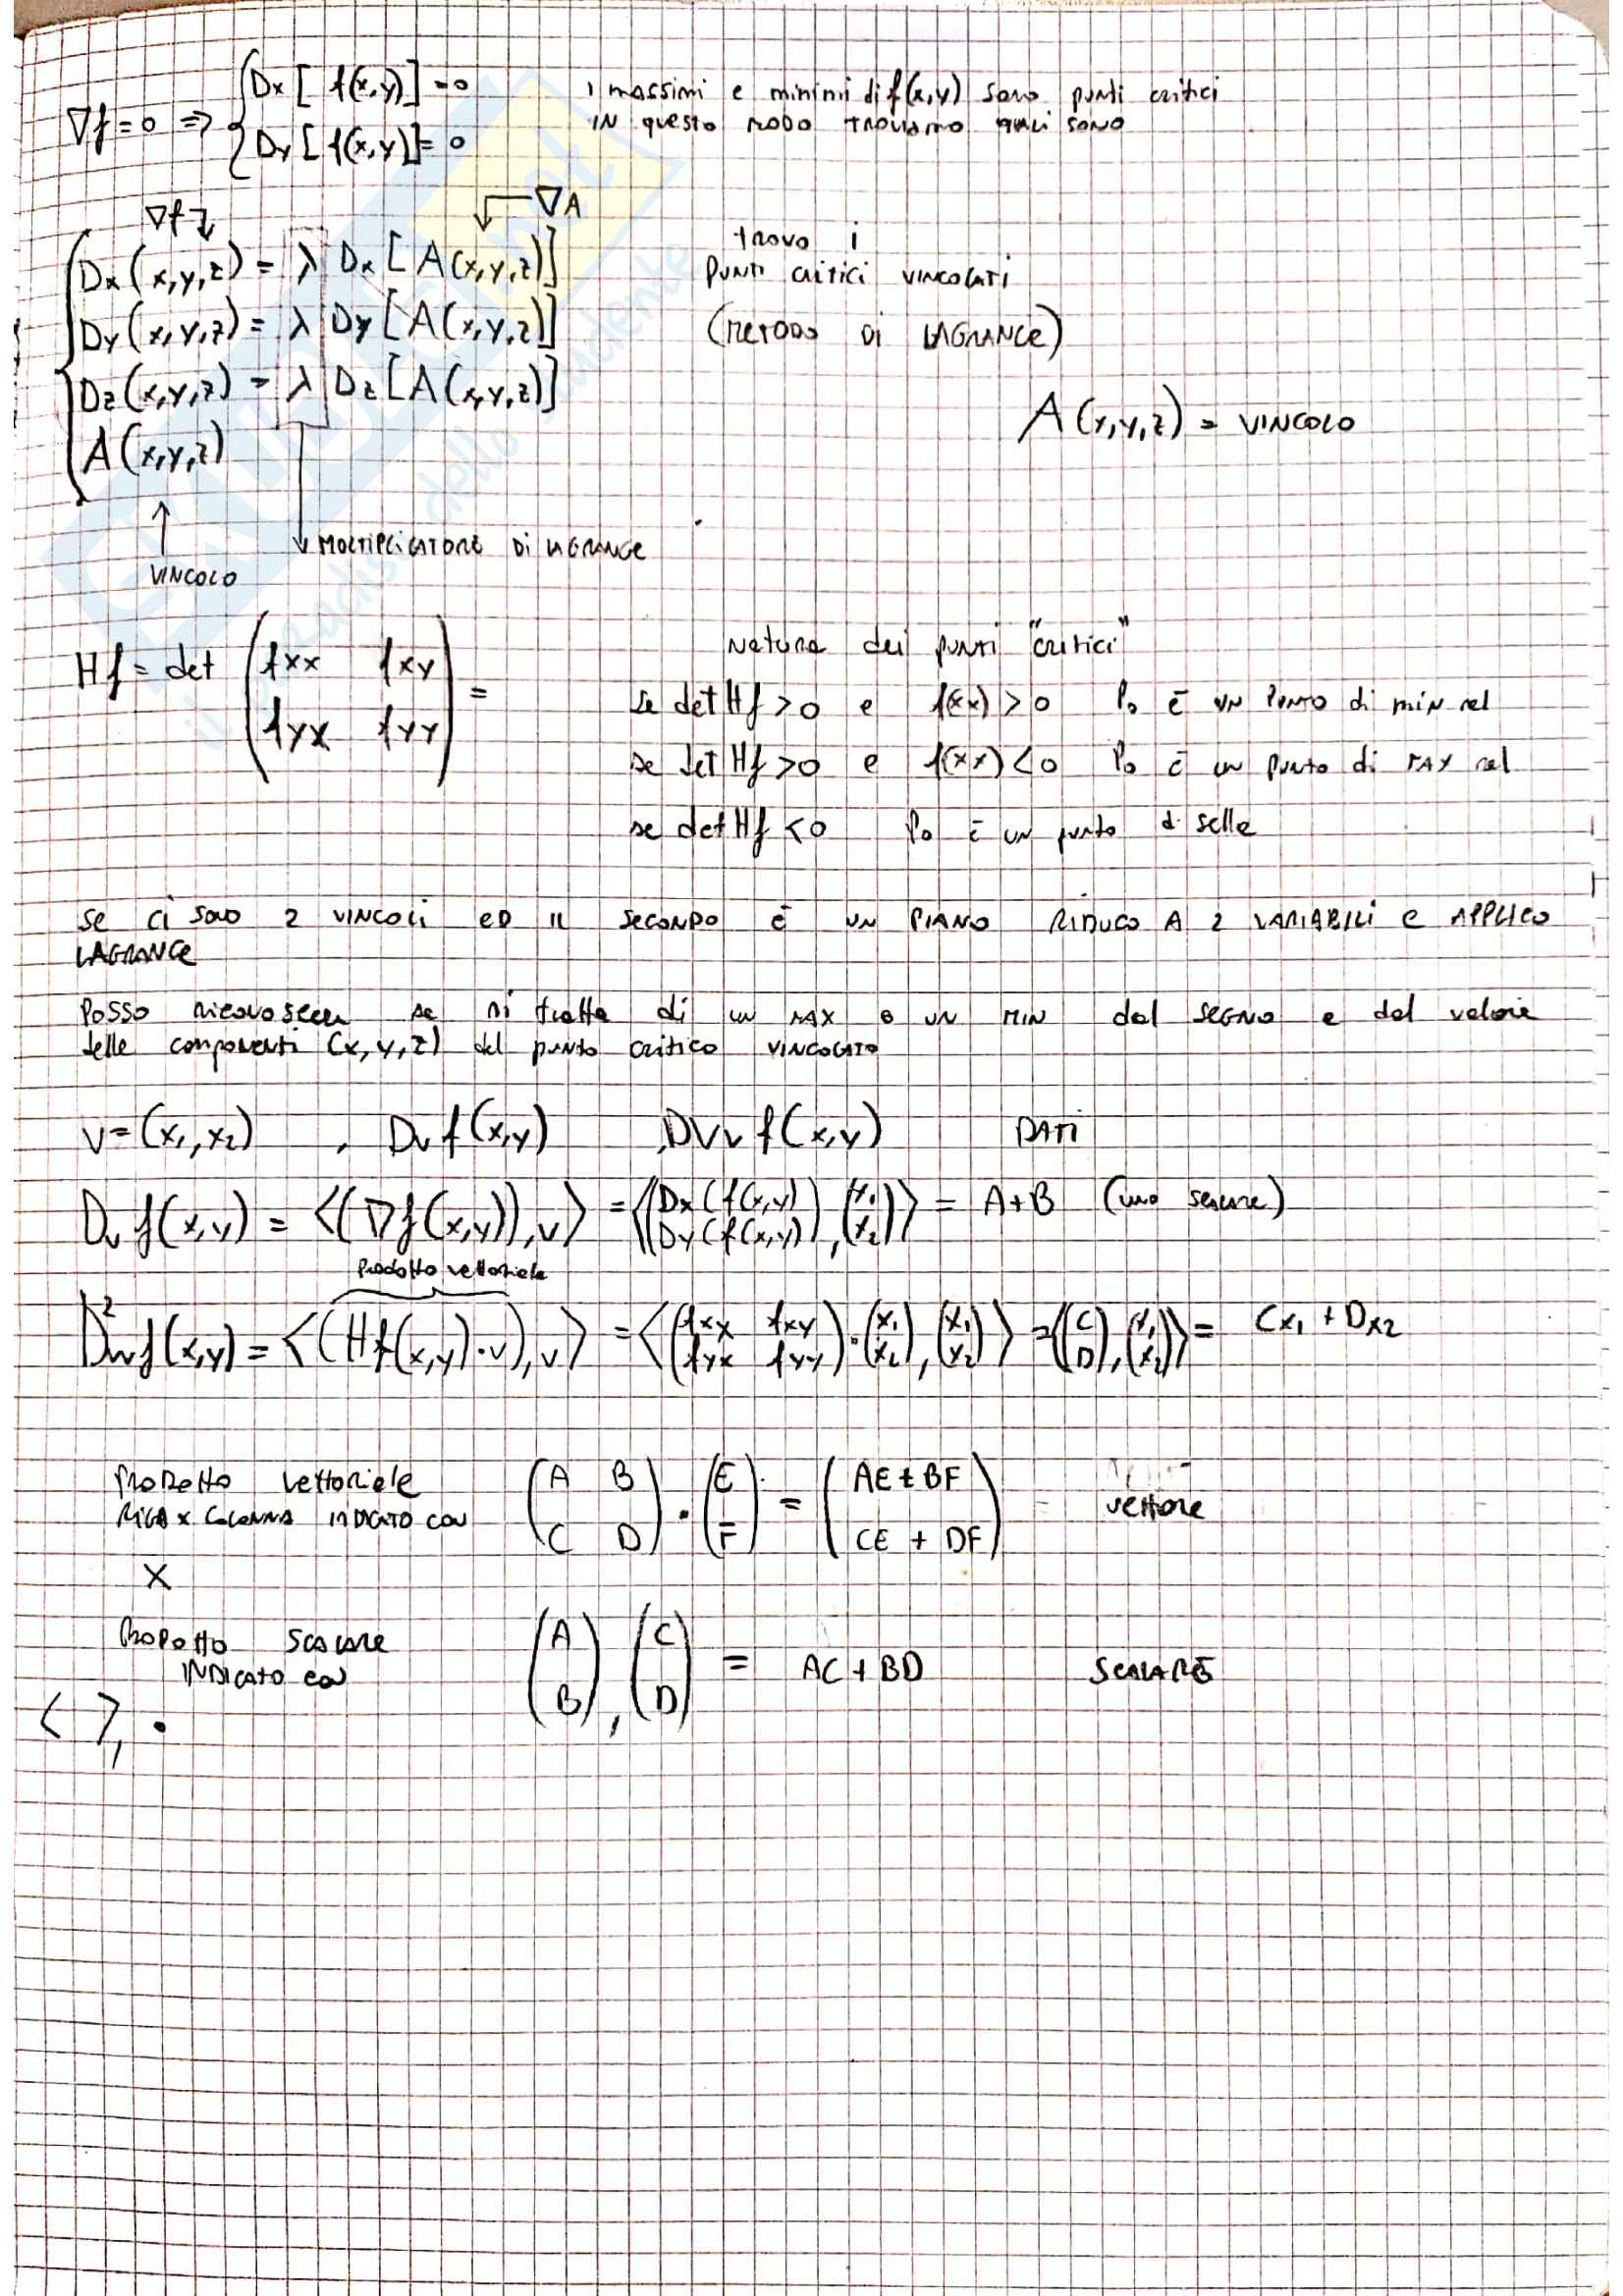 ∇f=0 ⇒ { Dx [ f(x,y)] = 0
Dy [ f(x,y)] = 0
i massimi e minimi di f(x,y) sono punti critici
IN questo modo troviamo quali sono
∇f
∇A
Dx (x,y,z) = λ Dx [A(x,y,z)]
Dy (x,y,z) = λ Dy [A(x,y,z)]
Dz (x,y,z) = λ Dz [A(x,y,z)]
A(x,y,z)
trovo i
PUNTI CRITICI VINCOLATI
(METODO DI LAGRANGE)
A(x,y,z) = VINCOLO
↑ VINCOLO
↓ MOLTIPLICATORE DI LAGRANGE
Hf = det ( fxx fxy
fyx fyy ) =
Natura dei punti "critici"
se det Hf > 0 e f(xx) > 0 P0 è UN PUNTO di MIN rel
se det Hf > 0 e f(xx) < 0 P0 è un punto di MAX rel
se det Hf < 0 P0 è un punto di sella
SE CI SONO 2 VINCOLI ED IL SECONDO È UN PIANO RIDUCO A 2 VARIABILI E APPLICO
LAGRANGE
POSSO riconoscere se si tratta di un MAX o UN MIN dal SEGNO e dal valore
delle componenti (x,y,z) del punto critico VINCOLATO
V=(x1,x2) , Dv f(x,y) , Dvv f(x,y) DATI
Dv f(x,y) = <(∇f(x,y)),v> = <( Dx(f(x,y)) Dy(f(x,y)) ),( x1 x2 )> = A+B (uno scalare)
Prodotto vettoriale
D²vv f(x,y) = <(Hf(x,y)·v),v> = <( fxx fxy fyx fyy )·( x1 x2 ),( x1 x2 )> = <( C D ),( x1 x2 )> = Cx1 + Dx2
PRODOTTO vettoriale
RIGA x COLONNA INDICATO CON
X
( A B
C D ) · ( E
F ) = ( AE + BF
CE + DF ) = vettore
PRODOTTO SCALARE
INDICATO CON
< >, ·
( A
B ) , ( C
D ) = AC + BD SCALARE